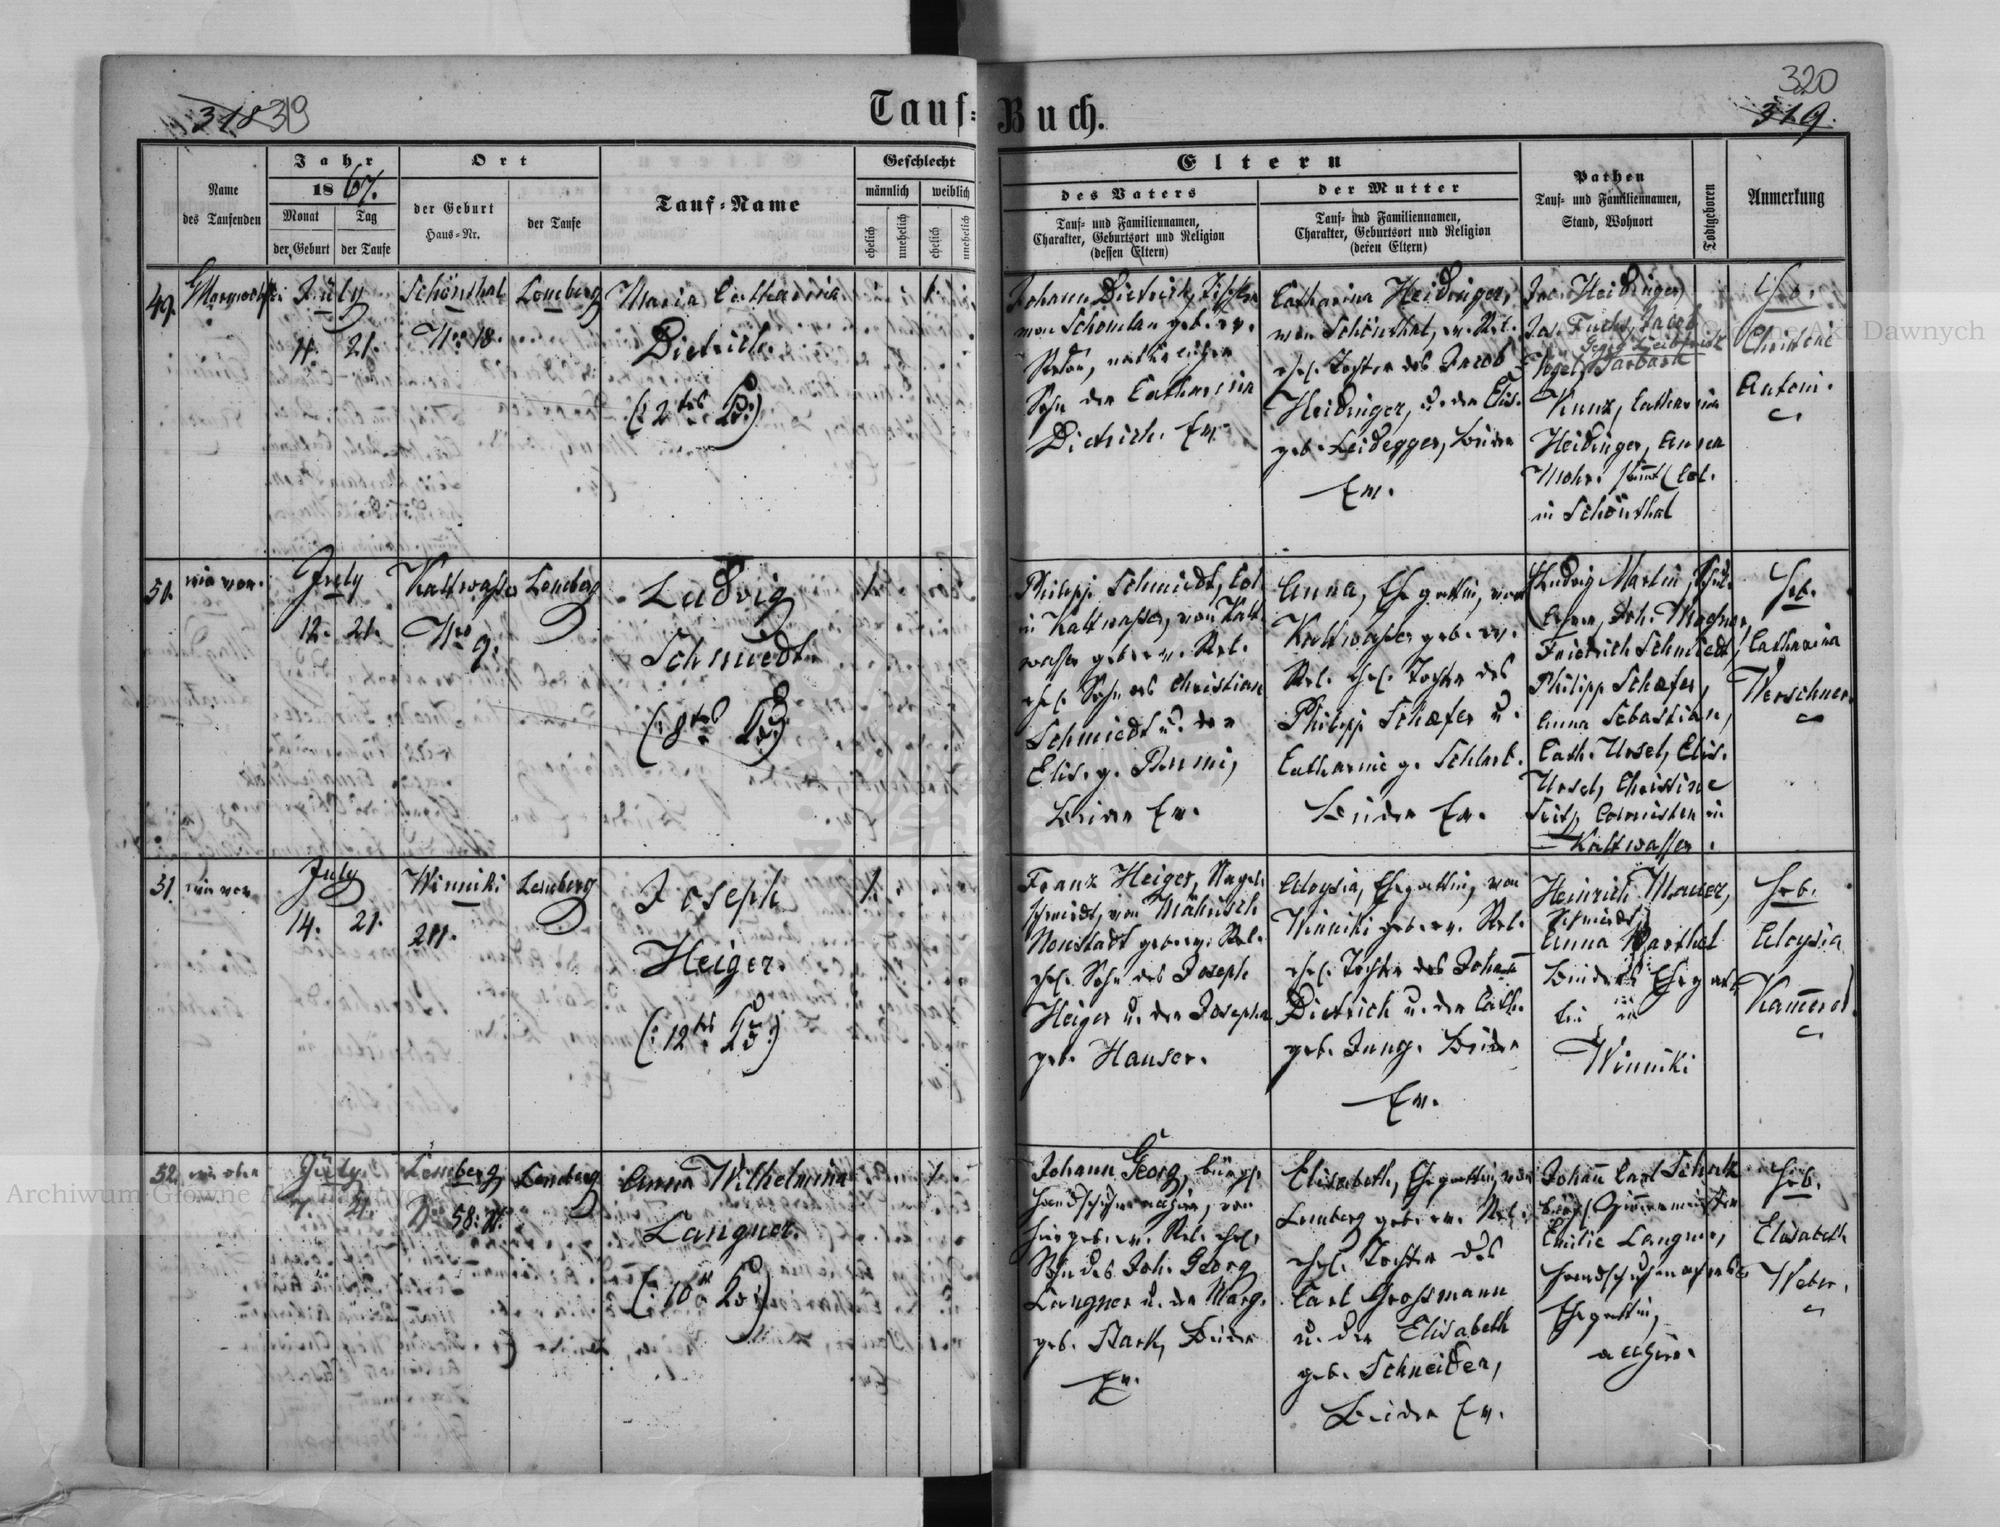 318 319
Tauf-Buch.
320
319.
Name
des Taufenden
Jahr
1867.
Monat
Tag
der Geburt
der Taufe
Ort
der Geburt
Haus-Nr.
der Taufe
Tauf-Name
Geschlecht
männlich
weiblich
ehelich
unehelich
ehelich
unehelich
Eltern
des Vaters
Tauf- und Familiennamen,
Charakter, Geburtsort und Religion
(dessen Eltern)
der Mutter
Tauf- und Familiennamen,
Charakter, Geburtsort und Religion
(deren Eltern)
Pathen
Tauf- und Familiennamen,
Stand, Wohnort
Todtgeboren
Anmerkung
49.
July
11. 21.
Schönthal
Nro 18.
Lemberg
Maria Catharina
Dietrich.
(: 2tes Kd :)
1.
Johann Dietrich,
von
geb. ev.
Relon,
Sohn der Catharina
Dietrich. Ev.
Catharina Heidinger,
von Schönthal, ev. Rel.
ehel. Tochter des Jacob
Heidinger, u. der Elis.
geb. Leidegger, beide
Ev.
Jac. Heidinger,
Jos. Fuchs, Jacob
Georg
Vogel, Barbara
Kunz, Catharina
Heidinger, Anna
Mohr. sämtl. Col.
in Schönthal
Heb.
Christine
Antoni.
50.
wie vor.
July
12. 21.
Kaltwasser
Nro 9.
Lemberg
Ludwig
Schmiedt.
(: 8tes Kd :)
1.
Philipp Schmiedt, Col.
in Kaltwasser, von Kalt-
wasser geb. ev. Rel.
ehel. Sohn des Christian
Schmiedt u. der
Elis. g.
beide Ev.
Anna, Ehegattin, von
Kaltwasser geb. ev.
Rel. ehel. Tochter des
Philipp Schäfer u.
Catharine g.
beide Ev.
Ludwig Martin, Schul-
lehrer, Joh. Wagner,
Friedrich Schmiedt,
Philipp Schäfer,
Anna Sebastian,
Cath. Ursel, Elis.
Ursel, Christine
Seitz, Colonisten in
Kaltwasser.
Heb.
Catharina
Werschner.
51.
wie vor.
July
14. 21.
Winniki
211.
Lemberg
Joseph
Heiger.
(: 12tes Kd :)
1.
Franz Heiger, Nagel-
schmiedt, von Mährisch
Neustadt geb. ev. Rel.
ehel. Sohn des Joseph
Heiger u. der Josepha
geb. Hauser.
Aloysia, Ehegattin, von
Winniki geb. ev. Rel.
ehel. Tochter des Johann
Dietrich u. der Cath.
geb. Jung. Beide
Ev.
Heinrich Mauer,
Schmiedt,
Anna Barthel
in
Winniki
Heb.
Aloysia
Kamerer.
52.
wie oben
July
7. 21.
Lemberg
N. 58.
Lemberg
Anna Wilhelmina
Langner.
(: 10tes Kd :)
1.
Johann Georg, bürgl.
Handschuhmacher, von
hier geb. ev. Rel. ehel.
Sohn des Joh. Georg
Langner u. der Marg.
geb. Stark, Beide
Ev.
Elisabeth, Ehegattin, von
Lemberg geb. ev. Rel.
ehel. Tochter des
Carl Grossmann
u. der Elisabeth
geb. Schneider,
Beide Ev.
Johann Carl
bürgl. Zimmermeister
Emilie Langner,
Handschuhmachers
Ehegattin,
allhier.
Heb.
Elisabeth
Weber.
Archiwum Główne Akt Dawnych
Archiwum Główne Akt Dawnych